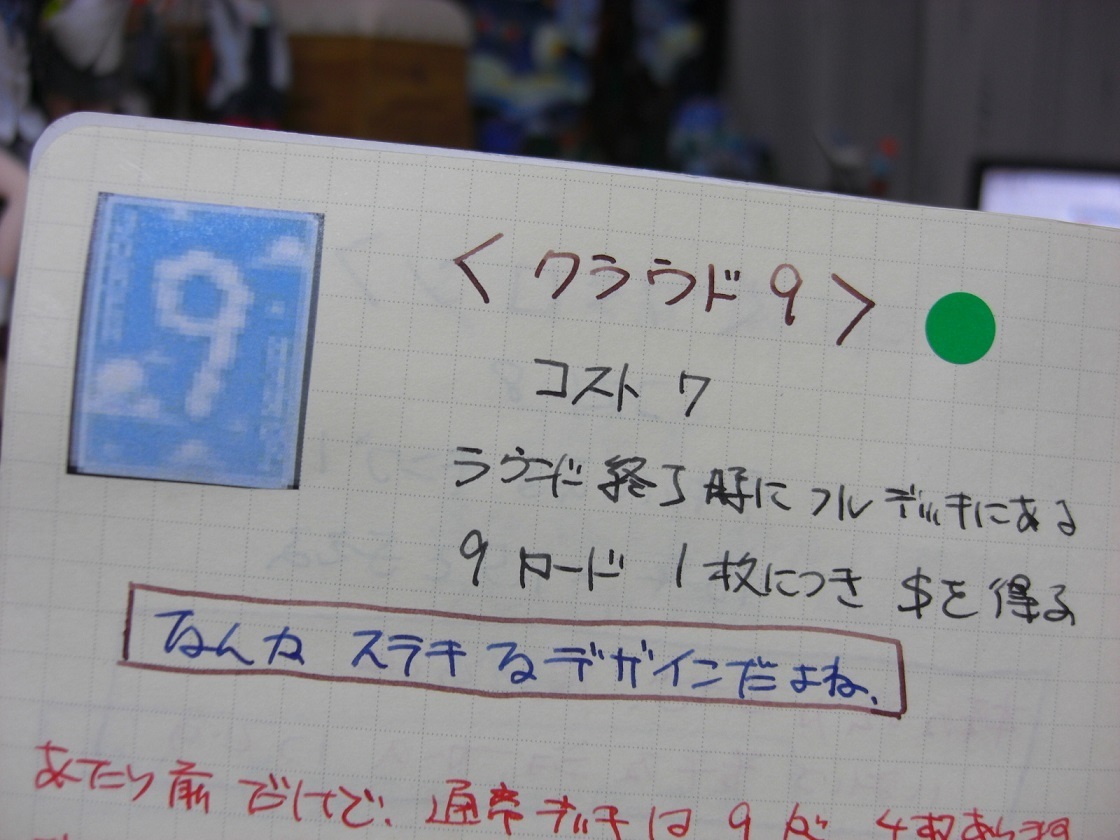 9
<クラウド9>
コスト 7
ラウンド終了時にフルデッキにある
9カード 1枚につき $を得る
なんか ステキなデザインだよね、
あたり前だけど、通常デッキは9が4枚あ